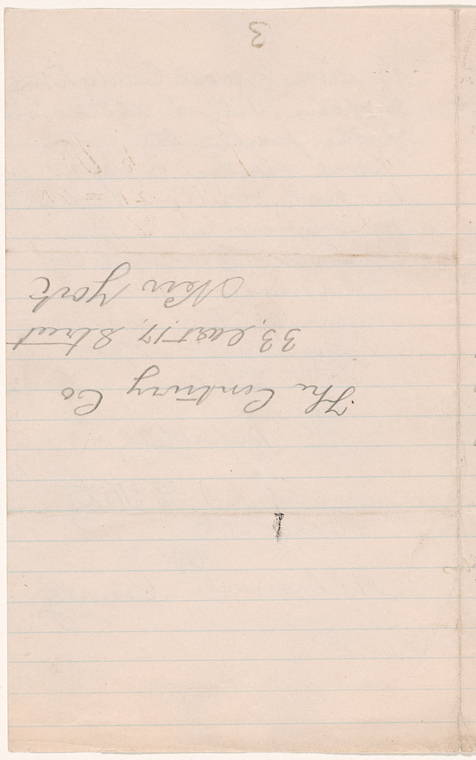 The Century Co
33, east. 17, Street
New York
3